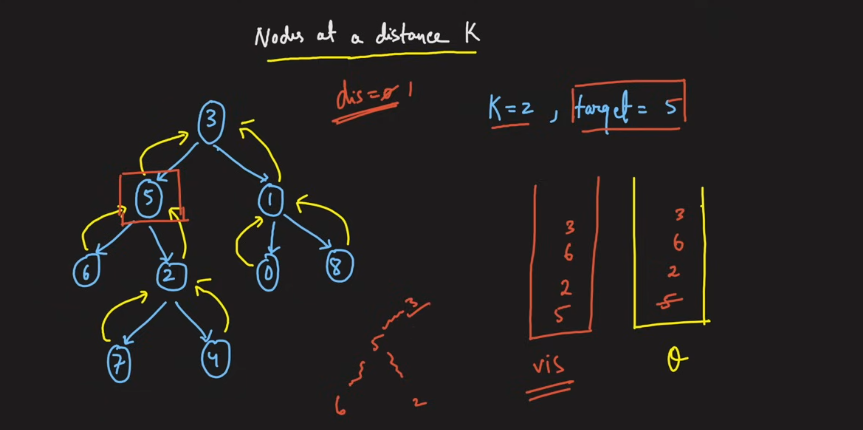 Nodes at a distance K
dis=0 1
K=2 , target = 5
3
5
1
6
2
0
8
7
4
3
5
6
2
3
6
2
5
vis
3
6
2
5
Q